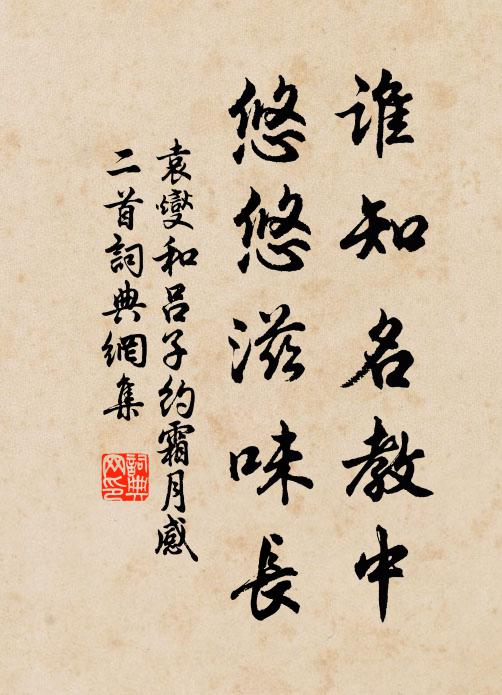 谁知名教中
悠悠滋味長
袁燮和吕子约霜月感
二首詞典網集
詞典网印